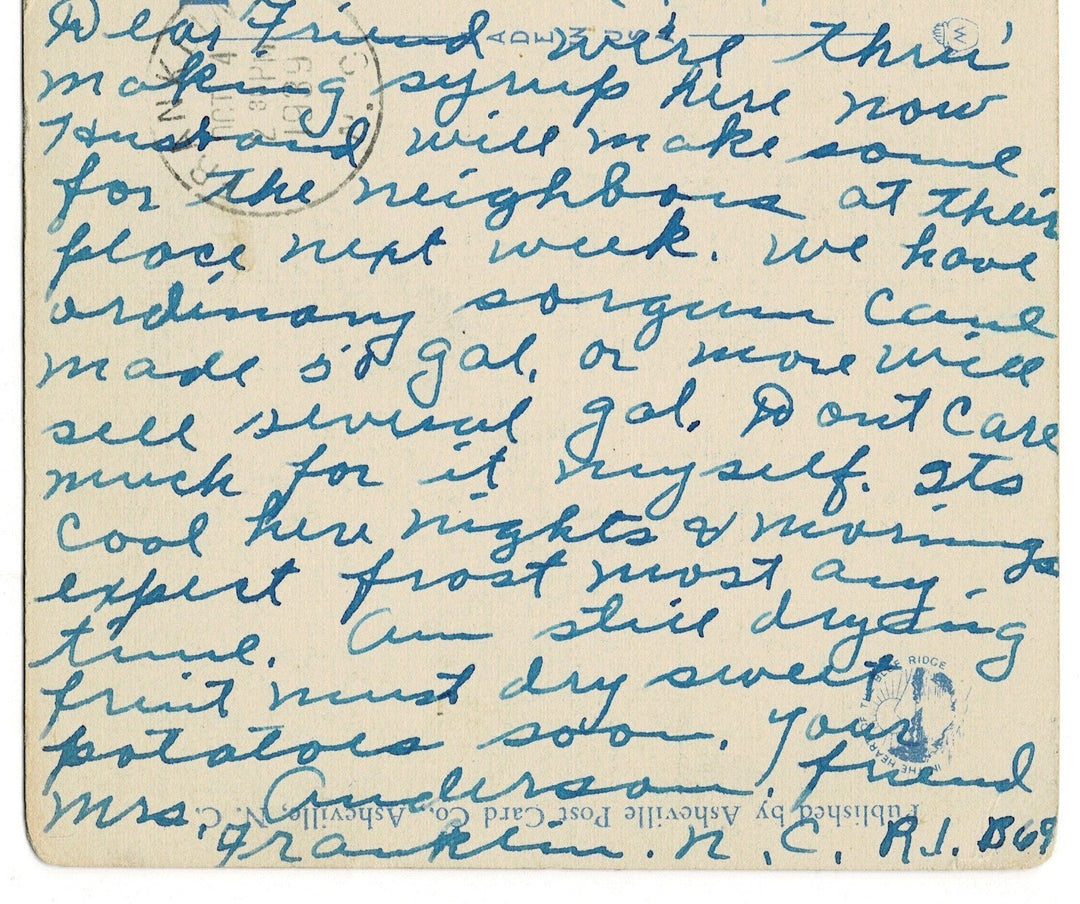 Dear Friend we're thru'
making syrup here now
Husband will make some
for the neighbors at their
place next week. We have
ordinary sorgum cane
made 50 gal. or more will
sell several gal. Dont care
much for it myself. Its
cool here nights & mornings
expect frost most any
time. Am still drying
fruit must dry sweet
potatoes soon. Your friend
Mrs. Anderson,
Franklin. N.C. R.1. B69
MADE IN U.S.A.
FRANKLIN N.C.
OCT 4
1939
IN THE HEART OF THE BLUE RIDGE
Published by Asheville Post Card Co., Asheville, N. C.